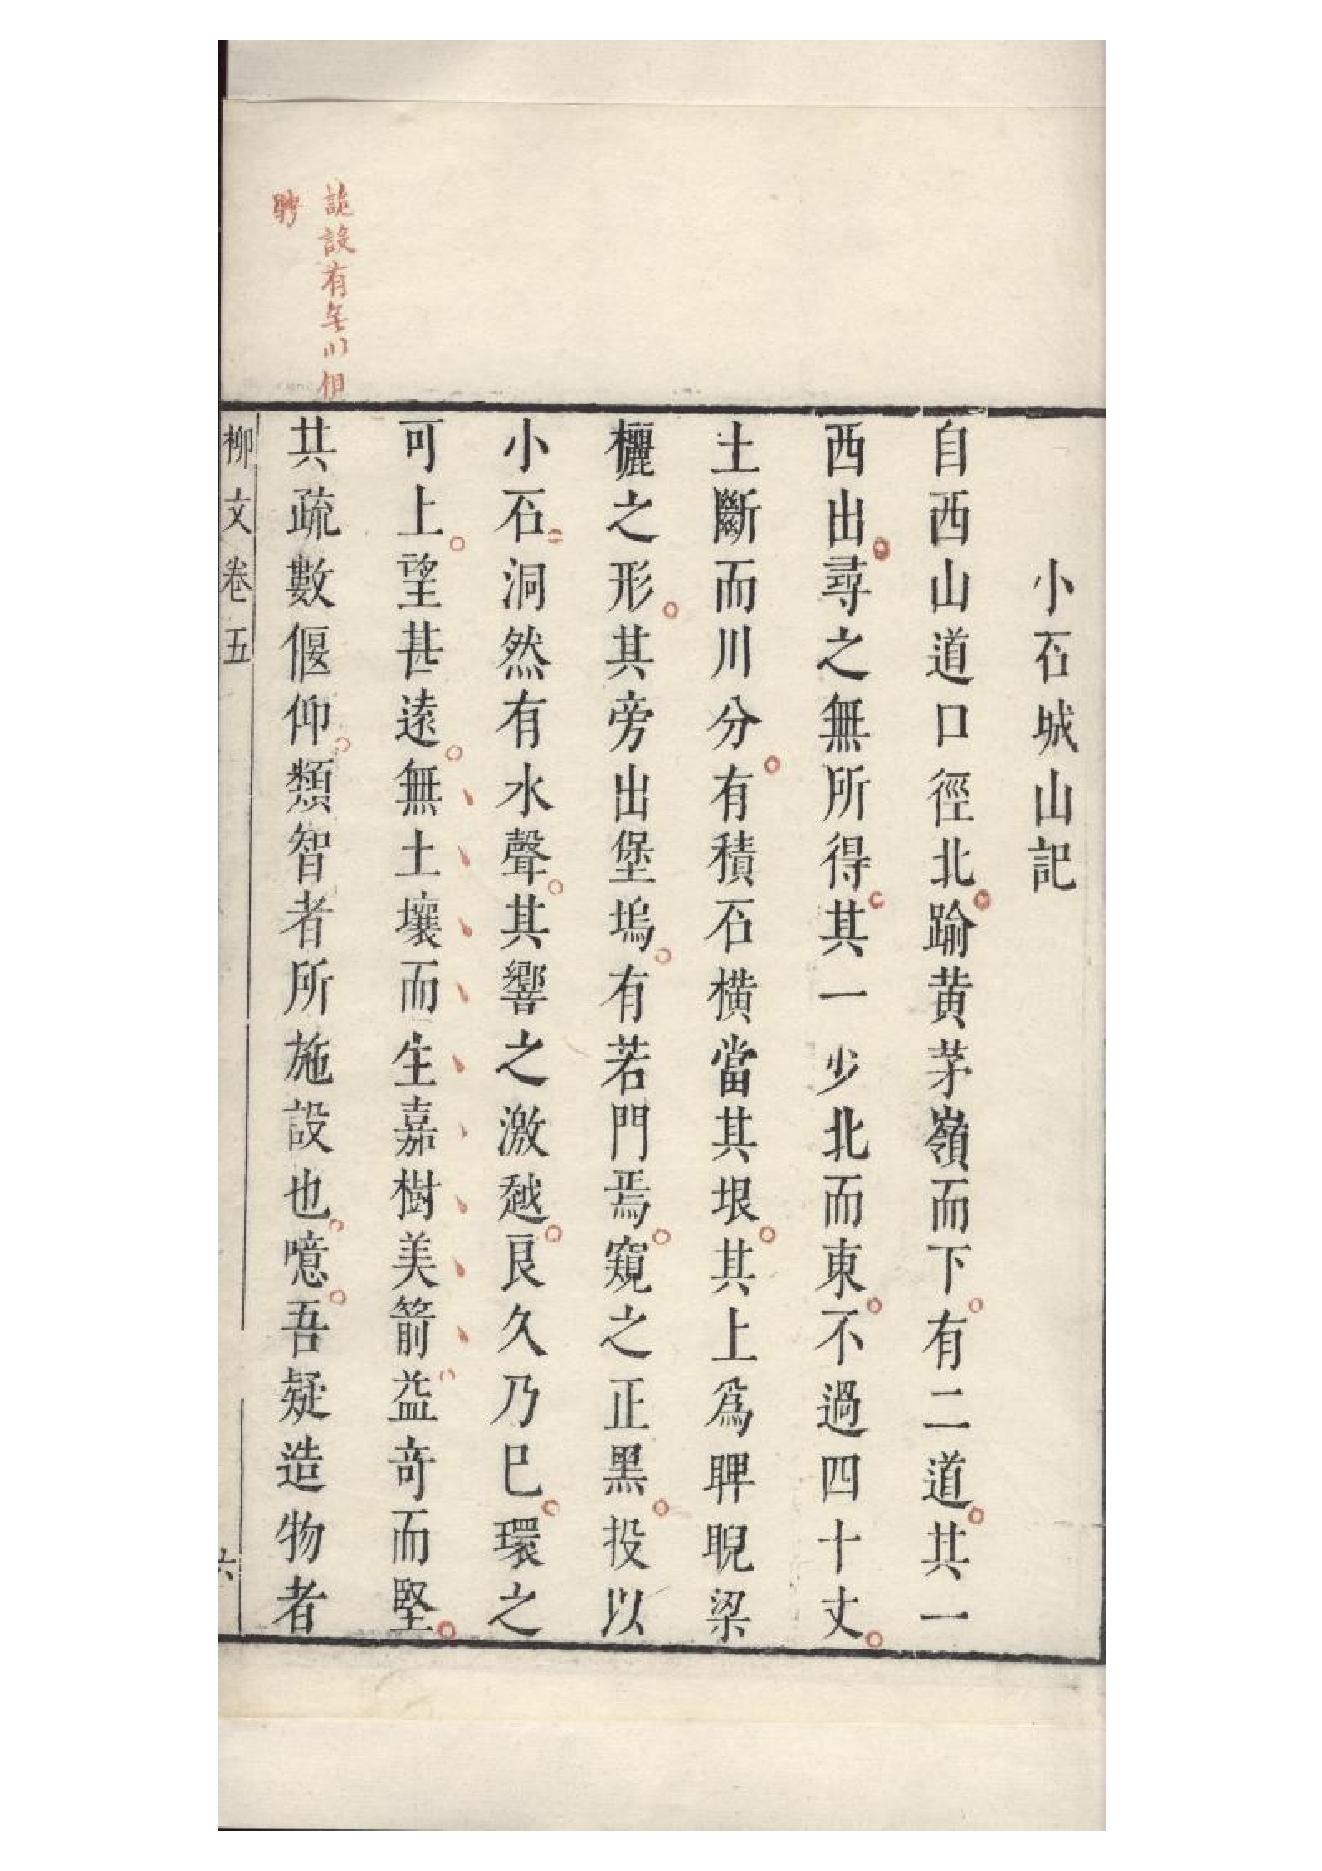 小石城山記
自西山道口徑北踰黄茅嶺而下有二道其一
西出尋之無所得其一少北而東不過四十丈
土斷而川分有積石橫當其垠其上爲睥睨梁
欐之形其旁出堡塢有若門焉窺之正黑投以
小石洞然有水聲其響之激越良久乃已環之
可上望甚遠無土壤而生嘉樹美箭益奇而堅
其疏數偃仰類智者所施設也噫吾疑造物者
設有
柳文卷五
六